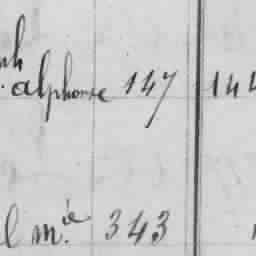 alphonse 147 144
l m.ie 343